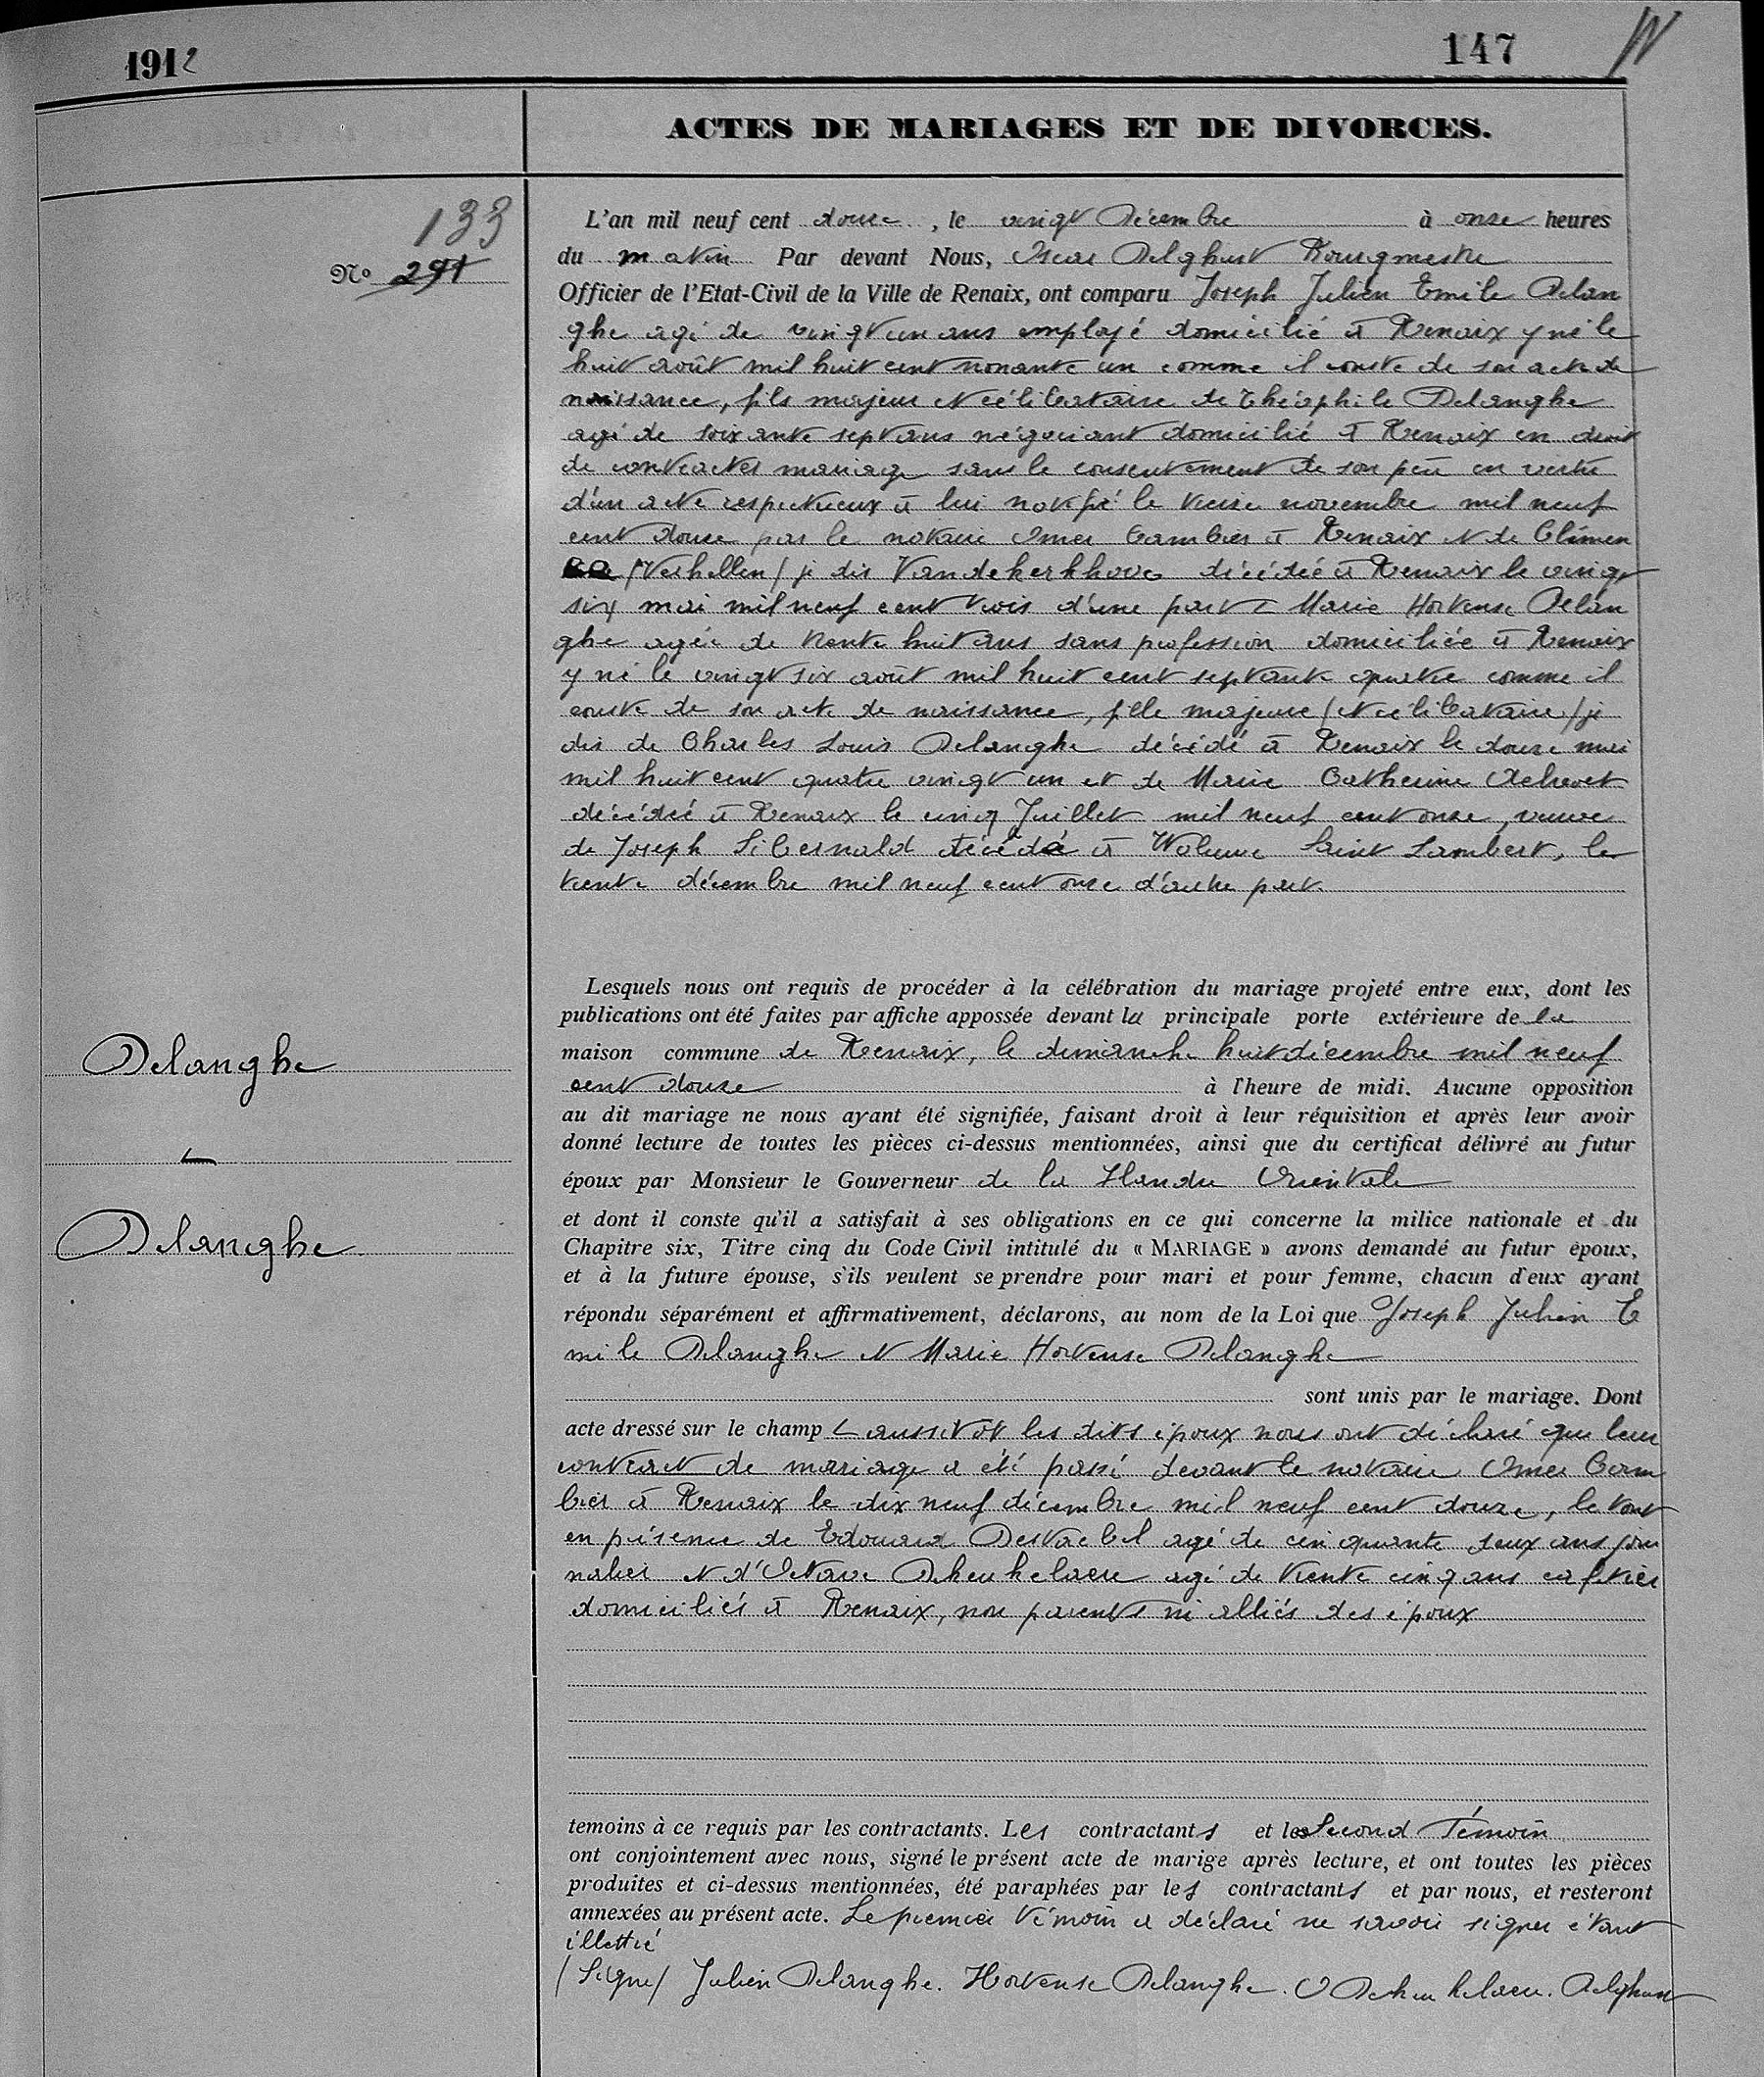 1912
147
ACTES DE MARIAGES ET DE DIVORCES.
133
No 291
L'an mil neuf cent douze, le vingt Décembre à onze heures
du matin Par devant Nous, Oscar Delghust Bourgmestre
Officier de l'Etat-Civil de la Ville de Renaix, ont comparu Joseph Julien Emile Delan
ghe agé de vingt un ans employé domicilié à Renaix y né le
huit août mil huit cent nonante un comme il conste de son acte de
naissance, fils majeur et célibataire de Théophile Delanghe
agé de soixante sept ans négociant domicilié à Renaix en droit
de contracter mariage sans le consentement de son père en vertu
d'un acte respectueux à lui notifié le treize novembre mil neuf
cent douze par le notaire Omer Cambier à Renaix et de Clémen
ce /Verhellen/ je dis Vandekerkhove décédée à Renaix le vingt
six mai mil neuf cent trois d'une part et Marie Hortense Delan
ghe agée de trente huit ans sans profession domiciliée à Renaix
y né le vingt six août mil huit cent septante quatre comme il
conste de son acte de naissance, fille majeure /et célibataire/ je
dis de Charles Louis Delanghe décédé à Renaix le douze mai
mil huit cent quatre vingt un et de Marie Catherine
décédée à Renaix le cinq Juillet mil neuf cent onze, veuve
de Joseph Libernald décédé à Woluwe Saint Lambert, le
trente décembre mil neuf cent onze d'autre part.
Lesquels nous ont requis de procéder à la célébration du mariage projeté entre eux, dont les
publications ont été faites par affiche appossée devant la principale porte extérieure de la
maison commune de Renaix, le dimanche huit décembre mil neuf
cent douze à l'heure de midi. Aucune opposition
Delanghe
au dit mariage ne nous ayant été signifiée, faisant droit à leur réquisition et après leur avoir
donné lecture de toutes les pièces ci-dessus mentionnées, ainsi que du certificat délivré au futur
et
époux par Monsieur le Gouverneur de la Flandre Orientale
et dont il conste qu'il a satisfait à ses obligations en ce qui concerne la milice nationale et du
Delanghe
Chapitre six, Titre cinq du Code Civil intitulé du « MARIAGE » avons demandé au futur époux,
et à la future épouse, s'ils veulent se prendre pour mari et pour femme, chacun d'eux ayant
répondu séparément et affirmativement, déclarons, au nom de la Loi que Joseph Julien E
mile Delanghe et Marie Hortense Delanghe
sont unis par le mariage. Dont
acte dressé sur le champ et aussitôt les dits époux nous ont déclaré que leur
contract de mariage a été passé devant le notaire Omer Cam
bier à Renaix le dix neuf décembre mil neuf cent douze, le tout
en présence de Edouard Destaebel agé de cinquante deux ans jour
nalier et d'Octave Dekeukelaere agé de trente cinq ans cafetier
domiciliés à Renaix, non parents ni alliés des époux
temoins à ce requis par les contractants. Les contractants et le second Témoin
ont conjointement avec nous, signé le présent acte de marige après lecture, et ont toutes les pièces
produites et ci-dessus mentionnées, été paraphées par les contractants et par nous, et resteront
annexées au présent acte. Le premier témoin a déclaré ne savoir signer étant
illettré
/Signé/ Julien Delanghe. Hortense Delanghe. O Dekeukelaere. Delghust